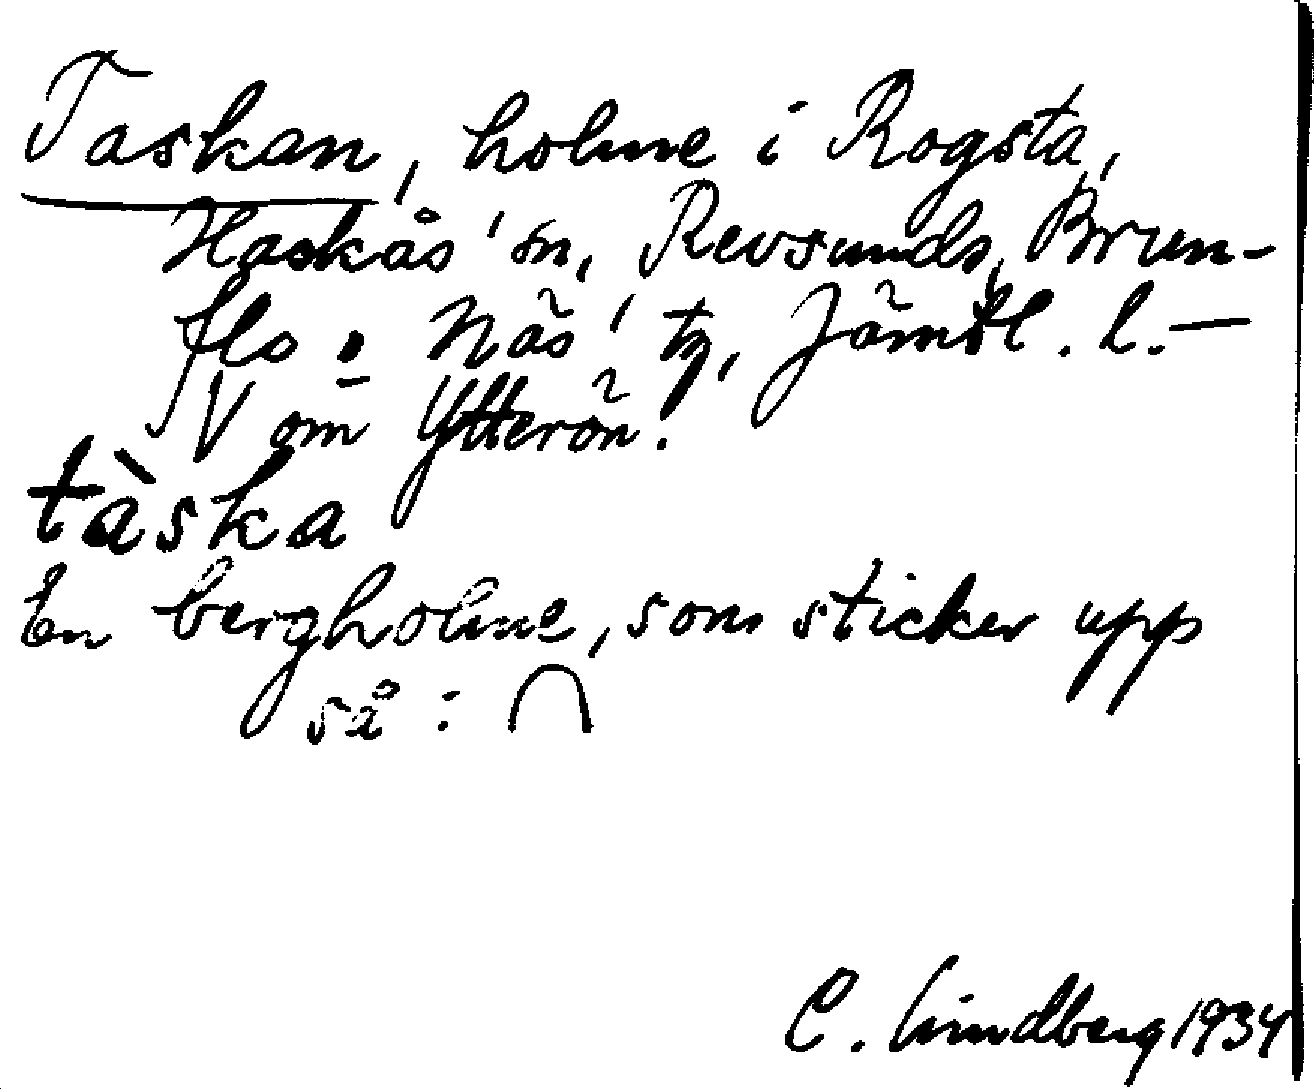 Taskan, holme i Rogsta,
Hackås' sn, Revsunds, Brun-
flo o Näs' tg, Jämtl. l. —
V om Ytterön.
tàska
En bergholme, som sticker upp
så: ∩
C. Lindberg 1934